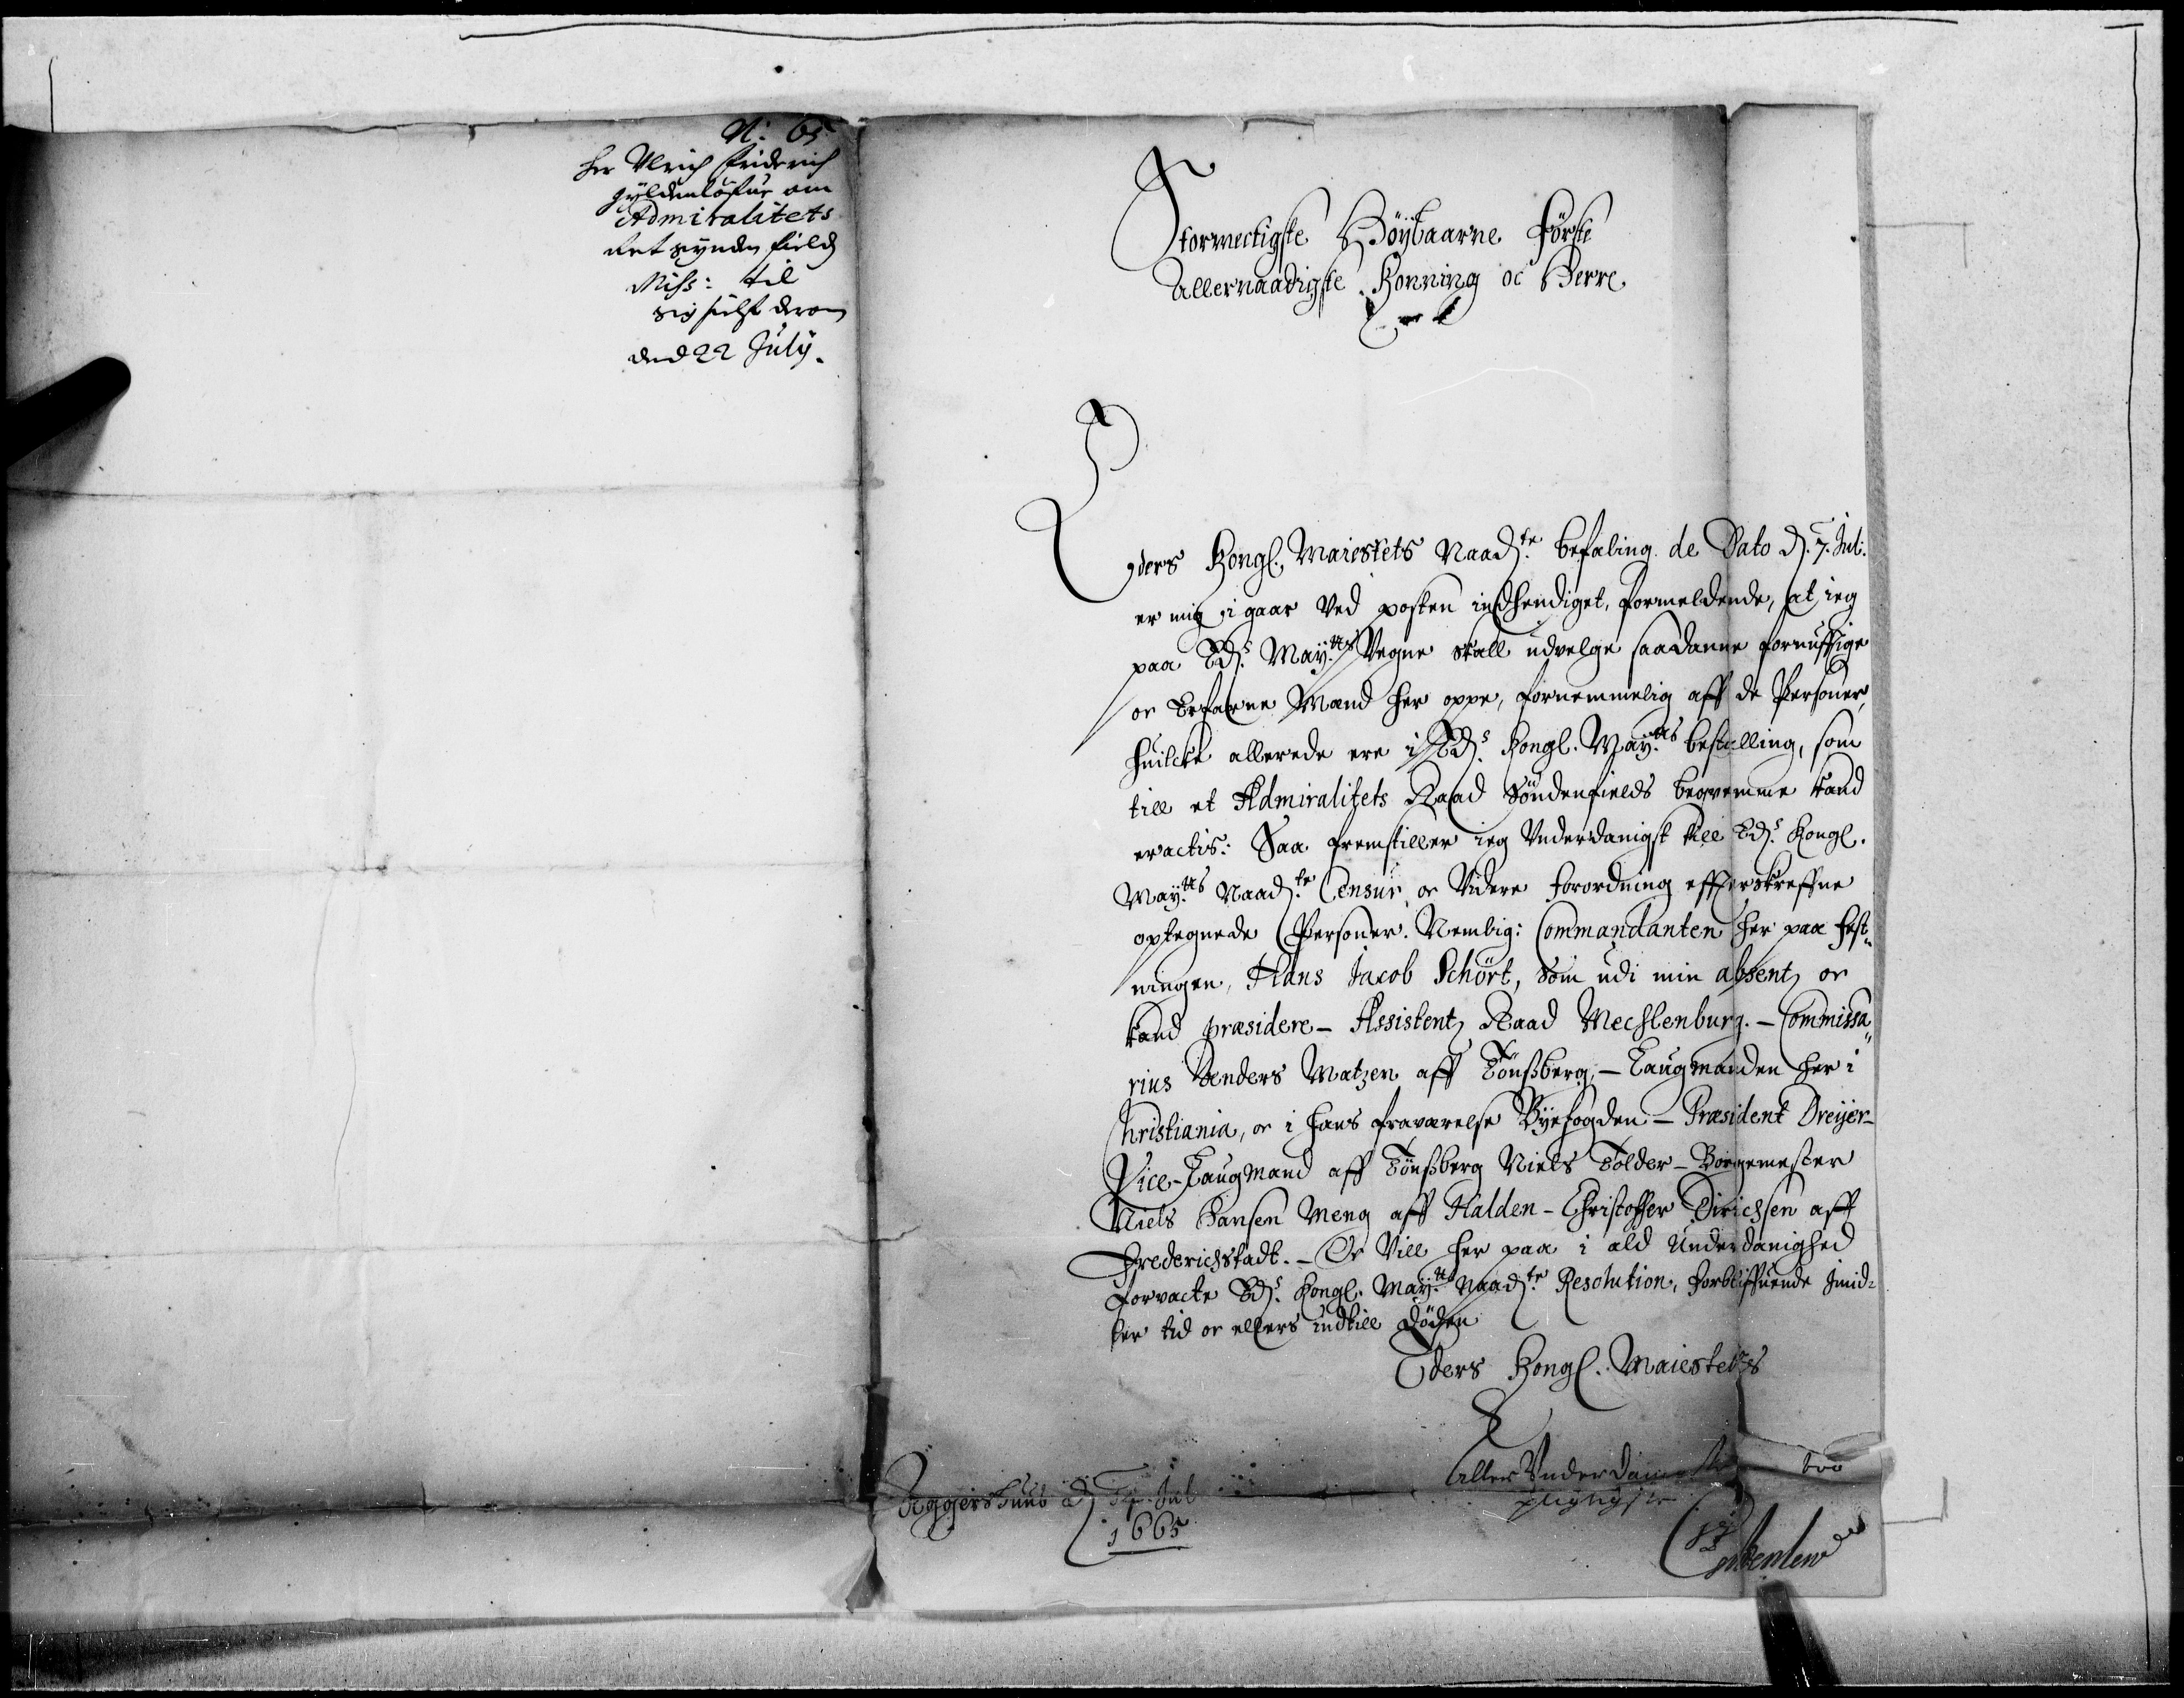 N: 65
her Ulrich Friderich
Gyldenløfue om
Admiralitets
Ret synden fields
Miss: til
sig sielf derom
dend 22 July.
Stormectigste Høybaarne Første
Allernaadigste Konning oc Herre
Eders Kongl. Maiestets Naad.te befaling de Dato d. 7. Jul:
er mig i gaar Ved posten indhendiget, formeldende, at ieg
paa Ed.s May.tts Vegne skall udvelge saadanne fornufftige
oc Erfarne Mænd her oppe, fornemmelig aff de Personer,
huilcke allerede ere i Ed.s Kongl. May.tts bestelling, som
till et Admiralitets Raad Søndenfields beqvemme kand
eractis: Saa fremstiller ieg Underdanigst till Ed.s Kongl.
May.tts Naad.te Censur, oc Videre forordning effterskreffne
optegnede Personer. Nemblig: Commandanten her paa fest„
ningen, Hans Jacob Schört, Som udi min absentz oc
kand præsidere - Assistentz Raad Mechlenburg. - Commissa„
rius Anders Matzen aff Tønsberg, - Laugmanden her i
Christiania, oc i hans fraværelse Byefogden - Præsident Dreyer-
Vice-Laugmand aff Tønsberg Niels Tolder - Borgemester
Niels Hansen Meng aff Halden - Christoffer Dirichsen aff
Frederichstadt. - Oc Vill her paa i ald Underdanighed
forvacte Ed.s Kongl. May.tts Naad.te Resolution, forbliffuende Imid-
ler tid oc ellers indtill Døden
Eders Kongl. Maiestetz
Aller Underdanigste troo
pligtigste
Aggershuus d. Jul
1665